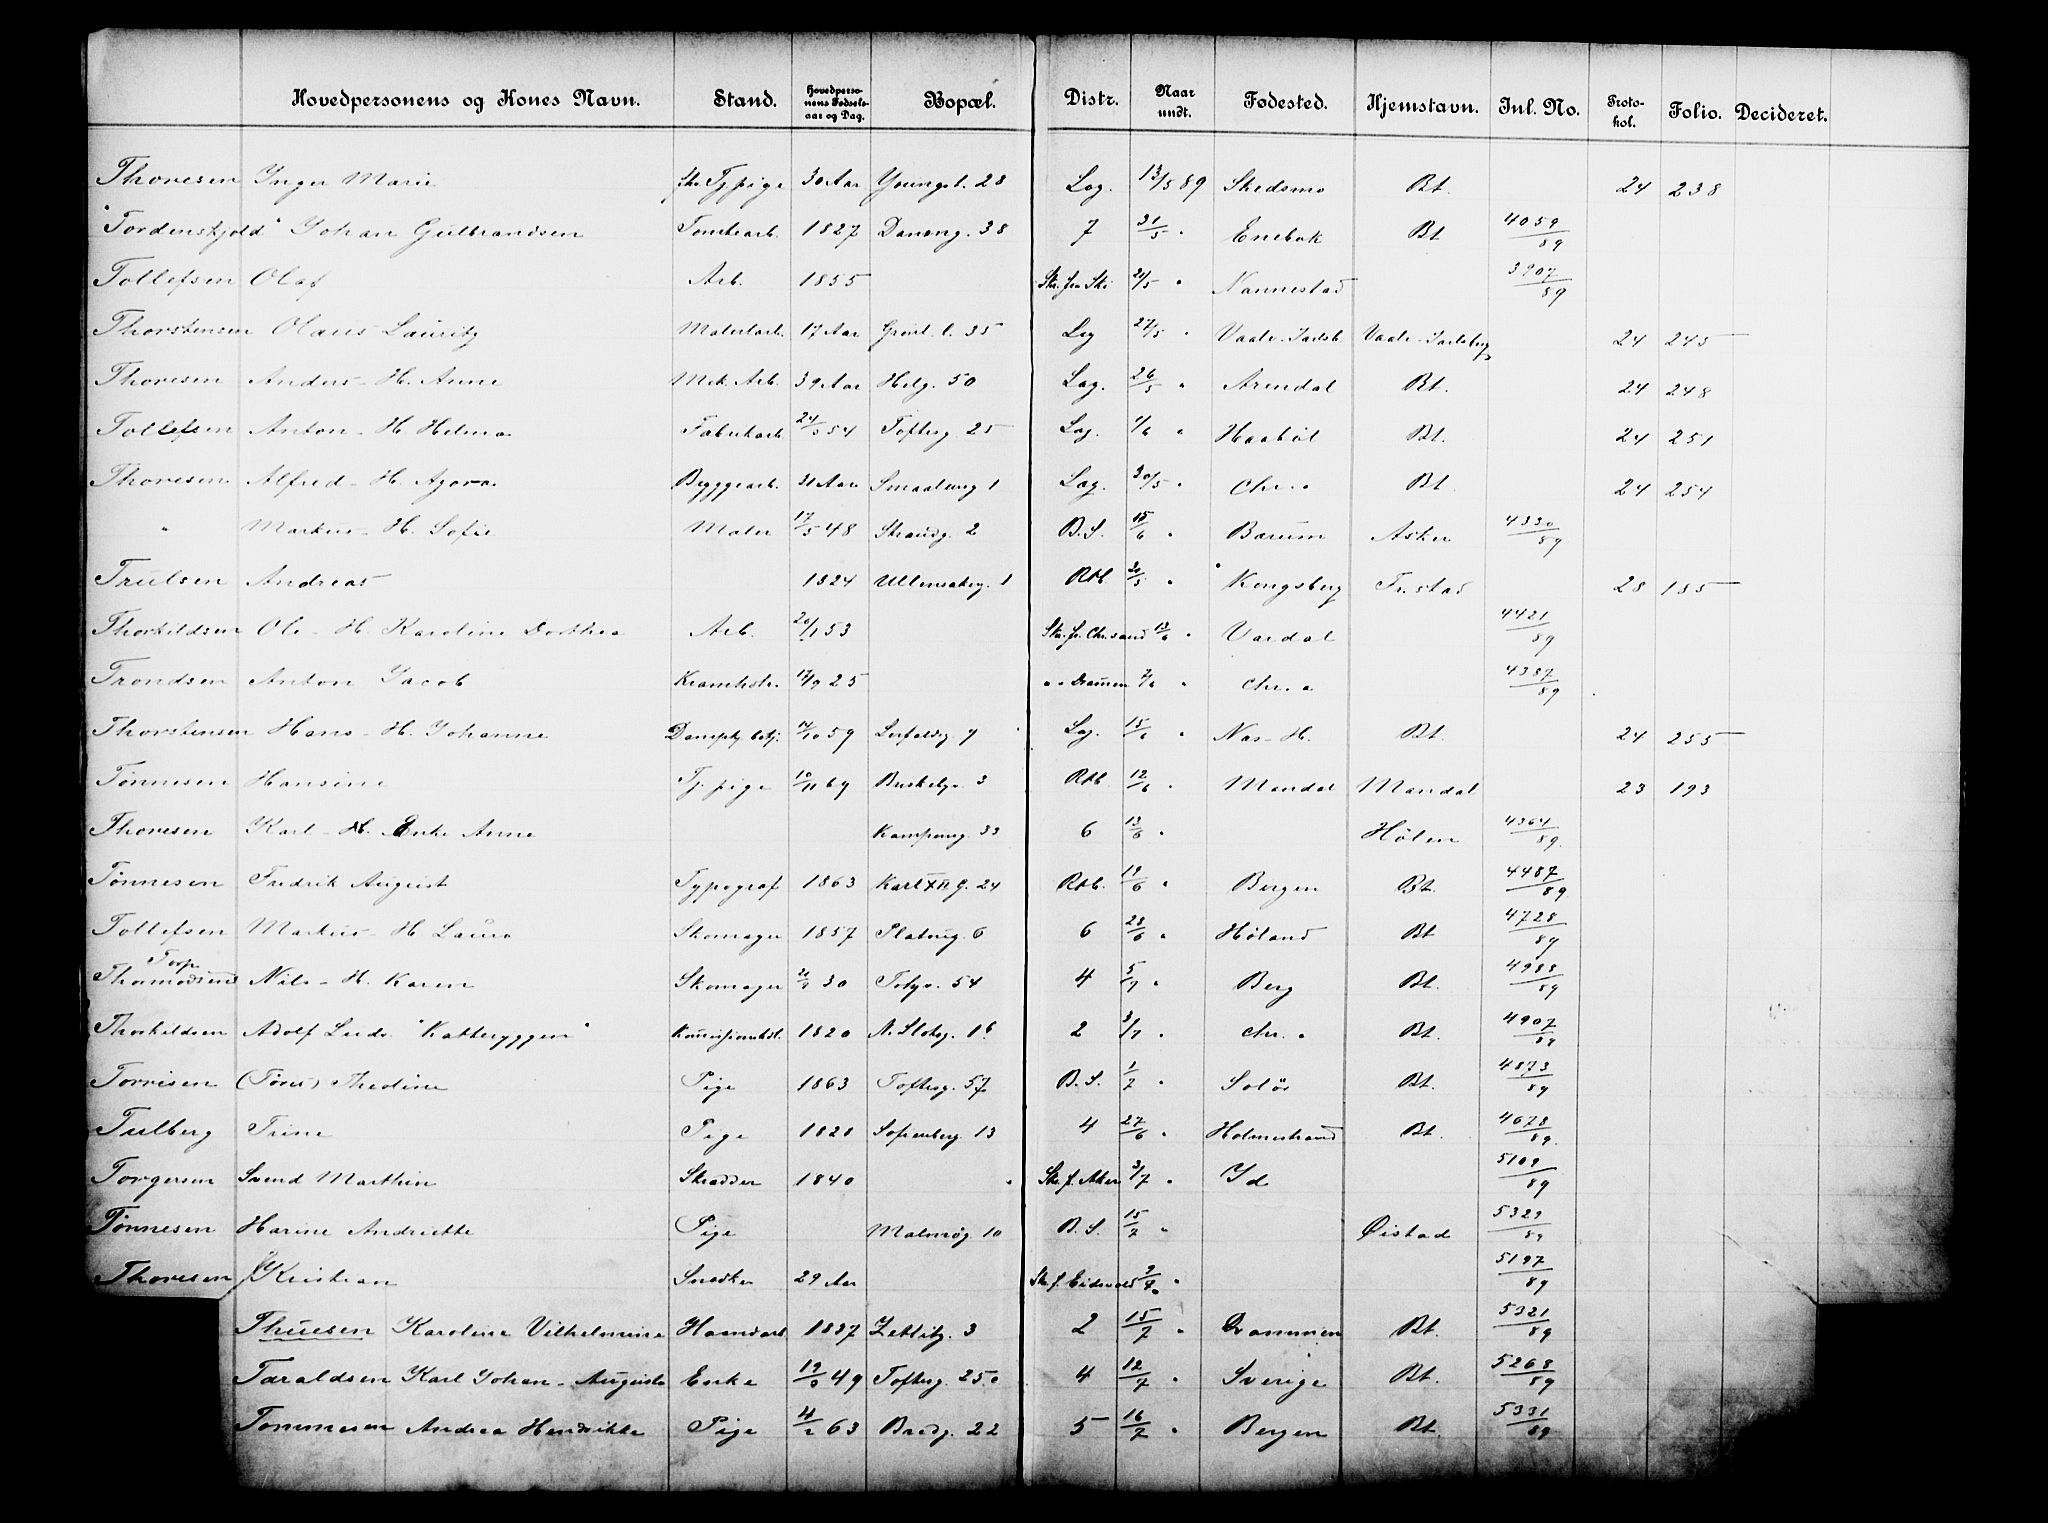 Hovedpersonens og Kones Navn. Stand. Hovedperso-nens Fødsels-aar og Dag. Bopæl. Distr. Naar undt. Fødested. Hjemstavn. Jnl. No. Proto-kol. Folio. Decideret.
Thoresen Inger Marie Typige 30 Aar Youngst. 28 Lag. 13/5 89 Skedsmo Bt. 24 238
"Tordenskjold" Johan Gulbrandsen Tomtearb. 1827 Danevg. 38 7 31/5 " Enebak Bt 4059/89
Tollefsen Olaf Arb. 1855 Skr. fra Ski 21/5 " Nannestad 3907/89
Thorstensen Olaus Lauritz Malerlærl. 17 Aar Grønl. l. 35 Lag 27/5 " Vaale-Jarlsb. Vaale-Jarlsberg 24 245
Thoresen Anders - H. Anne Mek. Arb. 39 Aar Helg. 50 Lag. 26/5 " Arendal Bt. 24 248
Tollefsen Anton - H. Helma Fabrikarb. 24/5 54 Toftesg. 25 Lag. 1/6 " Haabøl Bt. 24 251
Thoresen Alfred - H. Agora Byggearb. 31 Aar Smaalensg 1 Lag. 30/5 " Chr. a Bt. 24 254
" Markus - H. Sofie Maler 17/5 48 Strandg. 2 B.S. 15/6 " Bærum Asker 4330/89
Trulsen Andreas 1824 Ullensakerg. 1 Rdb. 21/5 " Kongsberg Fr.stad 28 185
Thorkildsen Ole - H. Karoline Dorthea Arb. 20/1 53 Skr. fr. Chr.sand 13/6 " Vardal 4421/89
Trondsen Anton Jacob Kramhdlr. 17/9 25 " " Drammen 7/6 " Chr. a 4387/89
Thorstensen Hans - H. Johanne 14/10 59 Lag. 15/6 " Næs - H. Bt. 24 255
Tønnesen Hansine Tj. pige 10/11 69 3 Rdb. 12/6 " Mandal Mandal 23 193
Thoresen Karl - H. Enke Anne Kampeng. 33 6 13/6 " Hølen 4364/89
Tønnesen Fredrik August Typograf 1863 Karl XII g. 24 Rdb. 19/6 " Bergen Bt. 4487/89
Tollefsen Markus - H. Laura Skomager 1857 Platoug. 6 6 28/6 " Høland Bt 4728/89
Torp
Thormodsens Nils - H. Karen Skomager 30 54 4 5/7 " Berg Bt. 4988/89
Thorkildsen Adolf Ludv. "Katteryggen" 1820 N. Slotsg. 16 2 3/7 " Chr. a Bt. 4907/89
Torrisen (Tøres) Thedine Pige 1863 Toftesg. 57 B.S. 1/7 " Solør Bt. 4873/89
Tulberg Trine Pige 1828 Sofienberg. 13 4 27/6 " Holmestrand Bt. 4678/89
Torgersen Svend Marthin Skrædder 1840 Skr. f. Aker 3/7 " Id 5109/89
Tønnesen Harine Andriette Pige Malmøg. 10 B.S. 15/7 " Øistad 5329/89
Thoresen Kristian Snedker 29 Aar Skr. f. Eidsvold " 5197/89
Thuesen Karoline Vilhelmine Haandarb 1837 Zetlitzg. 3 2 15/7 " Drammen Bt. 5321/89
Taraldsen Karl Johan - Augusta Enke 49 Toftesg. 25 4 12/7 " Sverige Bt. 5268/89
Tommesen Andrea Hendrikke Pige 63 Bredg. 22 5 16/7 " Bergen Bt. 5331/89